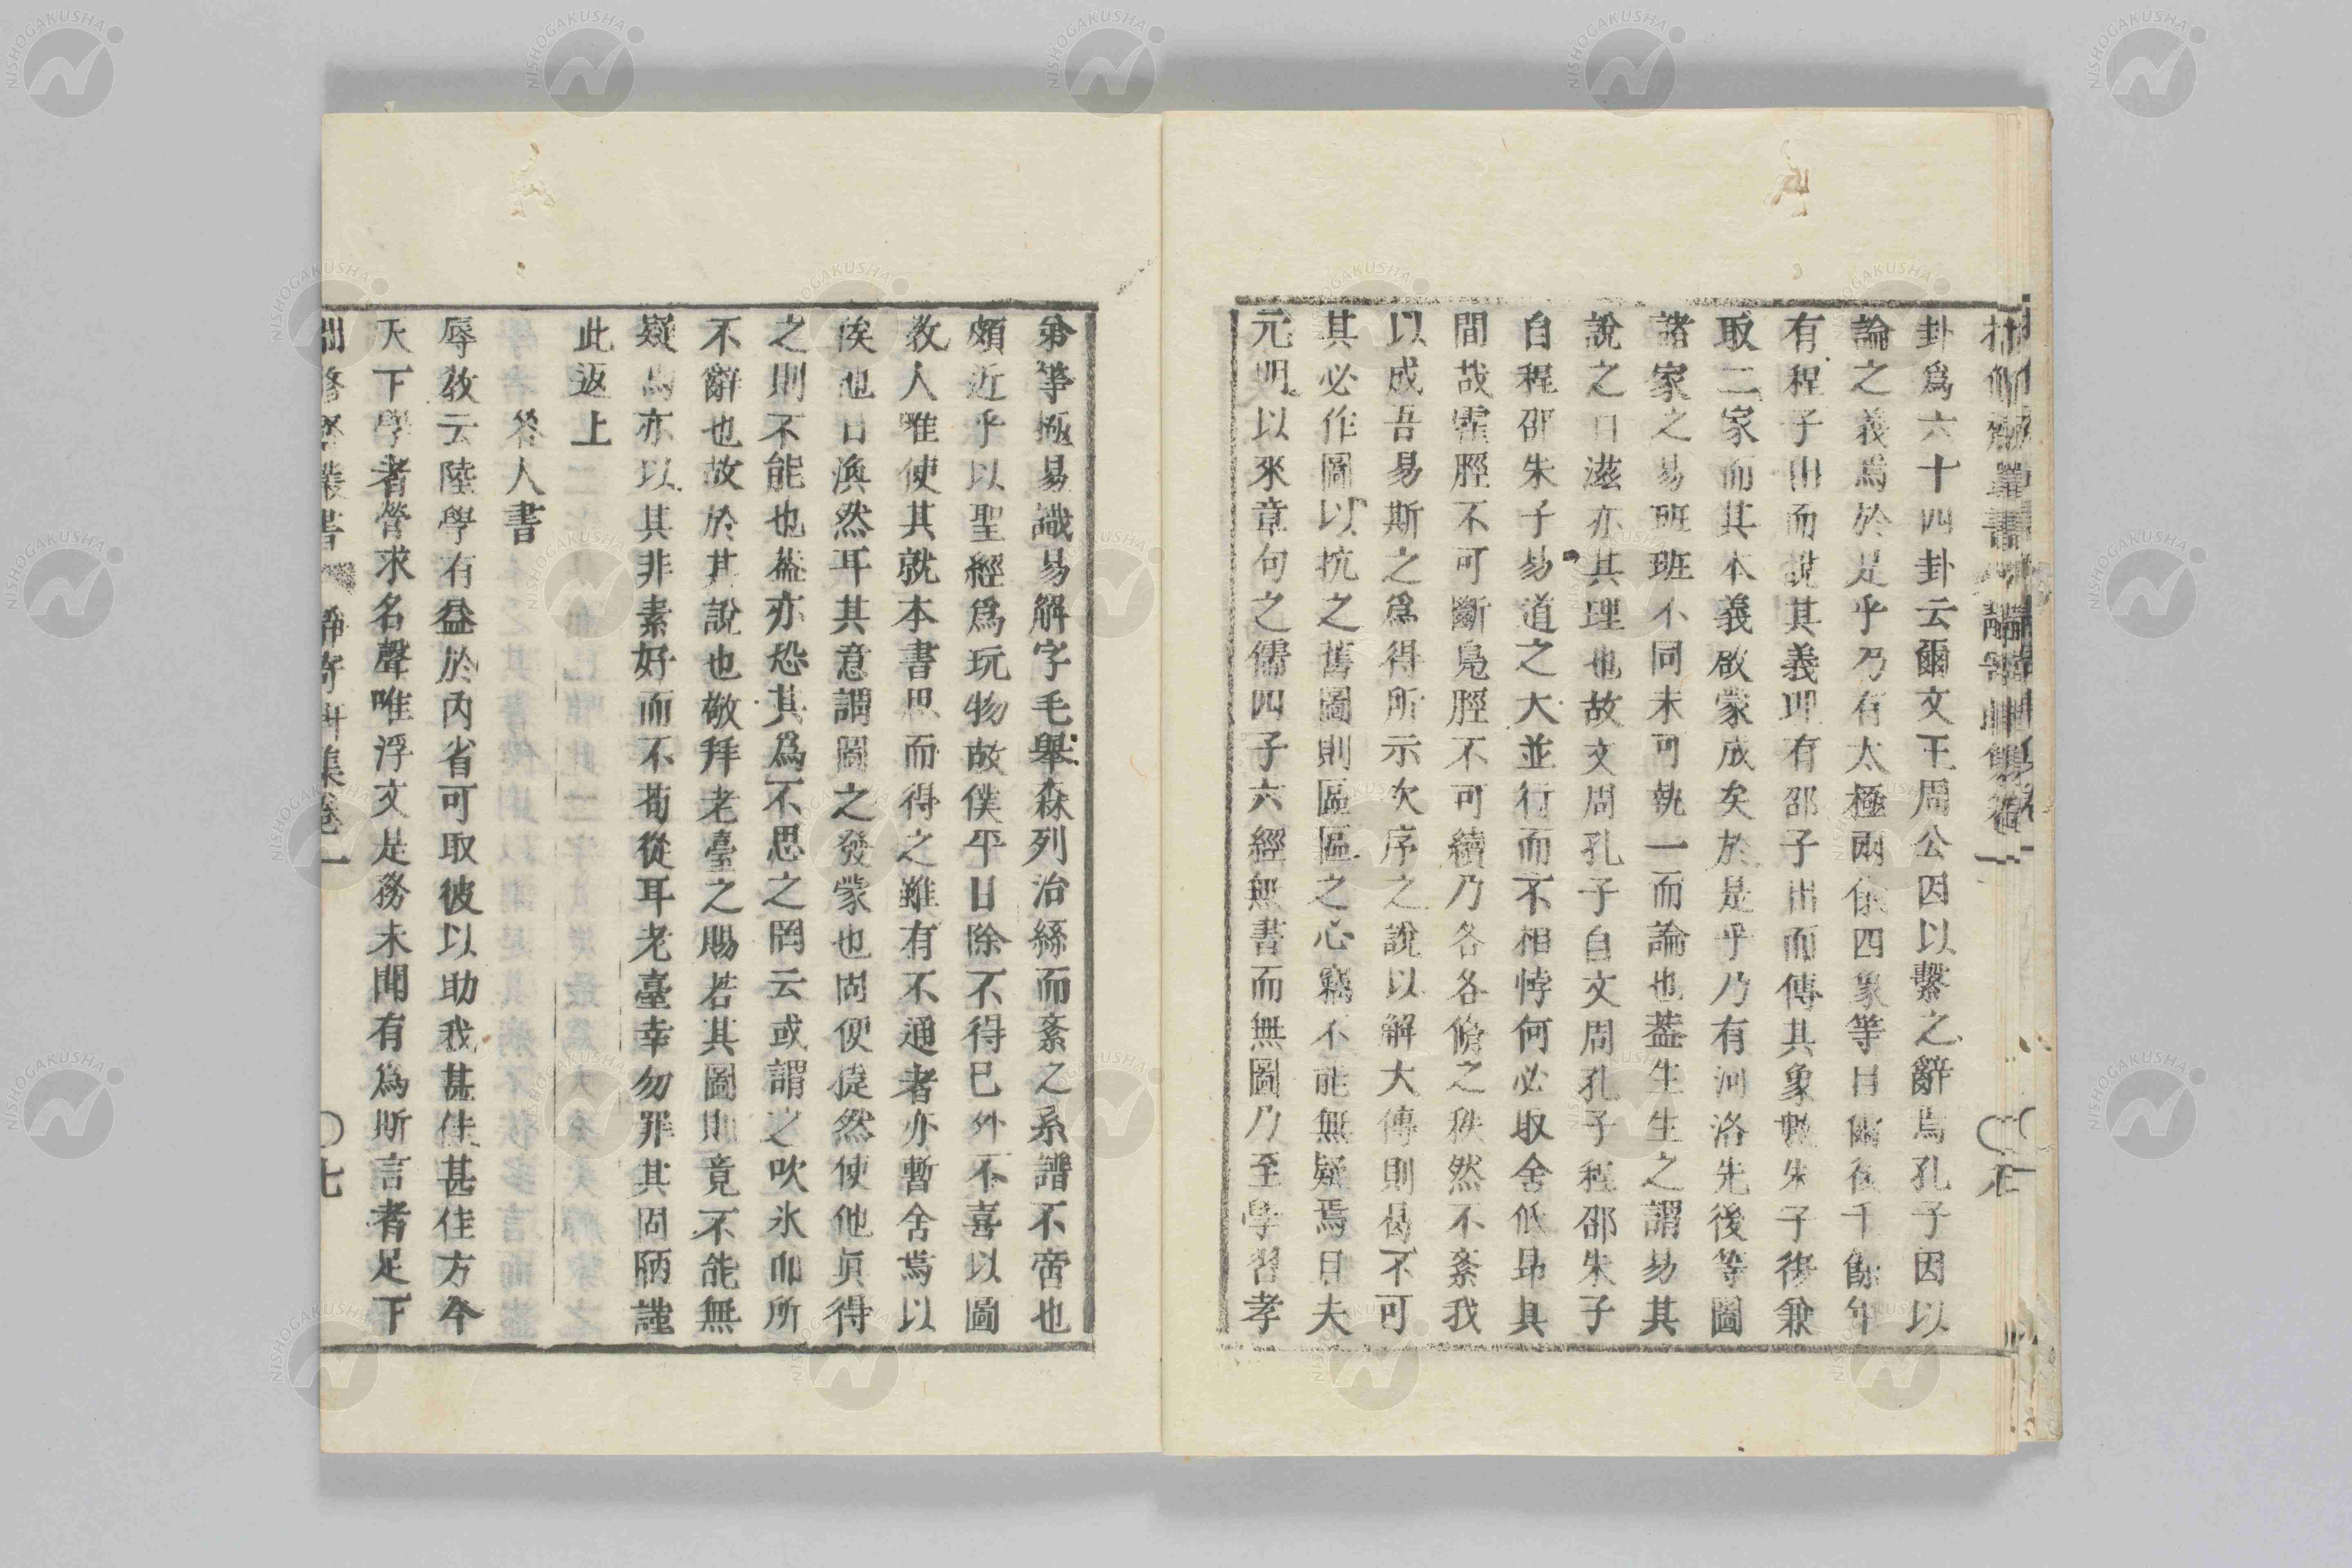 卦爲六十四卦云爾文王周公因以繫之辭焉孔子因以
論之義焉於是乎乃有太極兩儀四象等目爾後千餘年
有程子出而說其義理有邵子出而傳其象數朱子後兼
取二家而其本義啟蒙成矣於是乎乃有河洛先後等圖
諸家之易班班不同未可執一而論也葢生生之謂易其
說之日滋亦其理也故文周孔子自文周孔子程邵朱子
自程邵朱子易道之大並行而不相悖何必取舍低昂其
間哉雀脛不可斷鳧脛不可續乃各各脩之秩然不紊我
以成吾易斯之爲得所示次序之說以解大傳則曷不可
其必作圖以抗之舊圖則區區之心竊不能無疑焉且夫
元明以來章句之儒四子六經無書而無圖乃至學習孝
弟等極易識易解字毛舉森列治絲而紊之系譜不啻也
頗近乎以聖經爲玩物故僕平日除不得已外不喜以圖
敎人唯使其就本書思而得之雖有不通者亦暫舍焉以
俟他日渙然耳其意謂圖之發蒙也固便葢然使他眞得
之則不能也葢亦恐其爲不思之罔云或謂之吹氷而所
不辭也故於其說也敬拜老臺之賜若其圖則竟不能無
疑焉亦以其非素好而不苟從耳老臺幸勿罪其固陋謹
此返上
答人書
辱敎云陸學有益於內省可取彼以助我甚佳甚佳方今
天下學者營求名聲唯浮文是務未聞有爲斯言者足下
集卷一
〇七